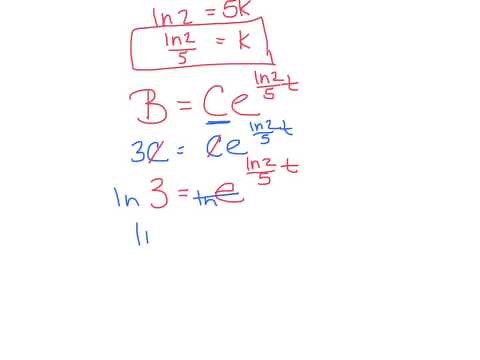 ln2 = 5k
ln2/5 = k
B = Ce^(ln2/5 t)
3C = Ce^(ln2/5 t)
ln 3 = ln e^(ln2/5 t)